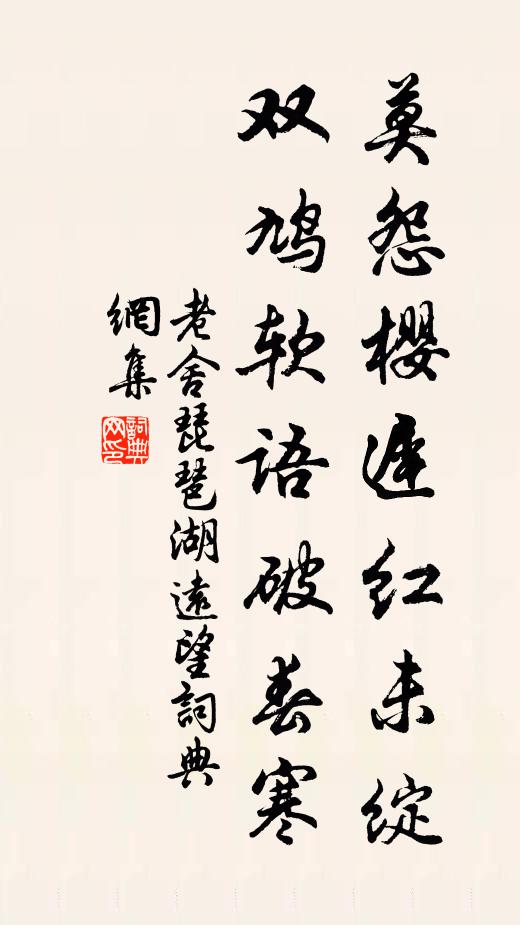 莫怨樱遲红未綻
双鸠软语破春寒
老舍琵琶湖遠望詞典
網集
詞典
网印